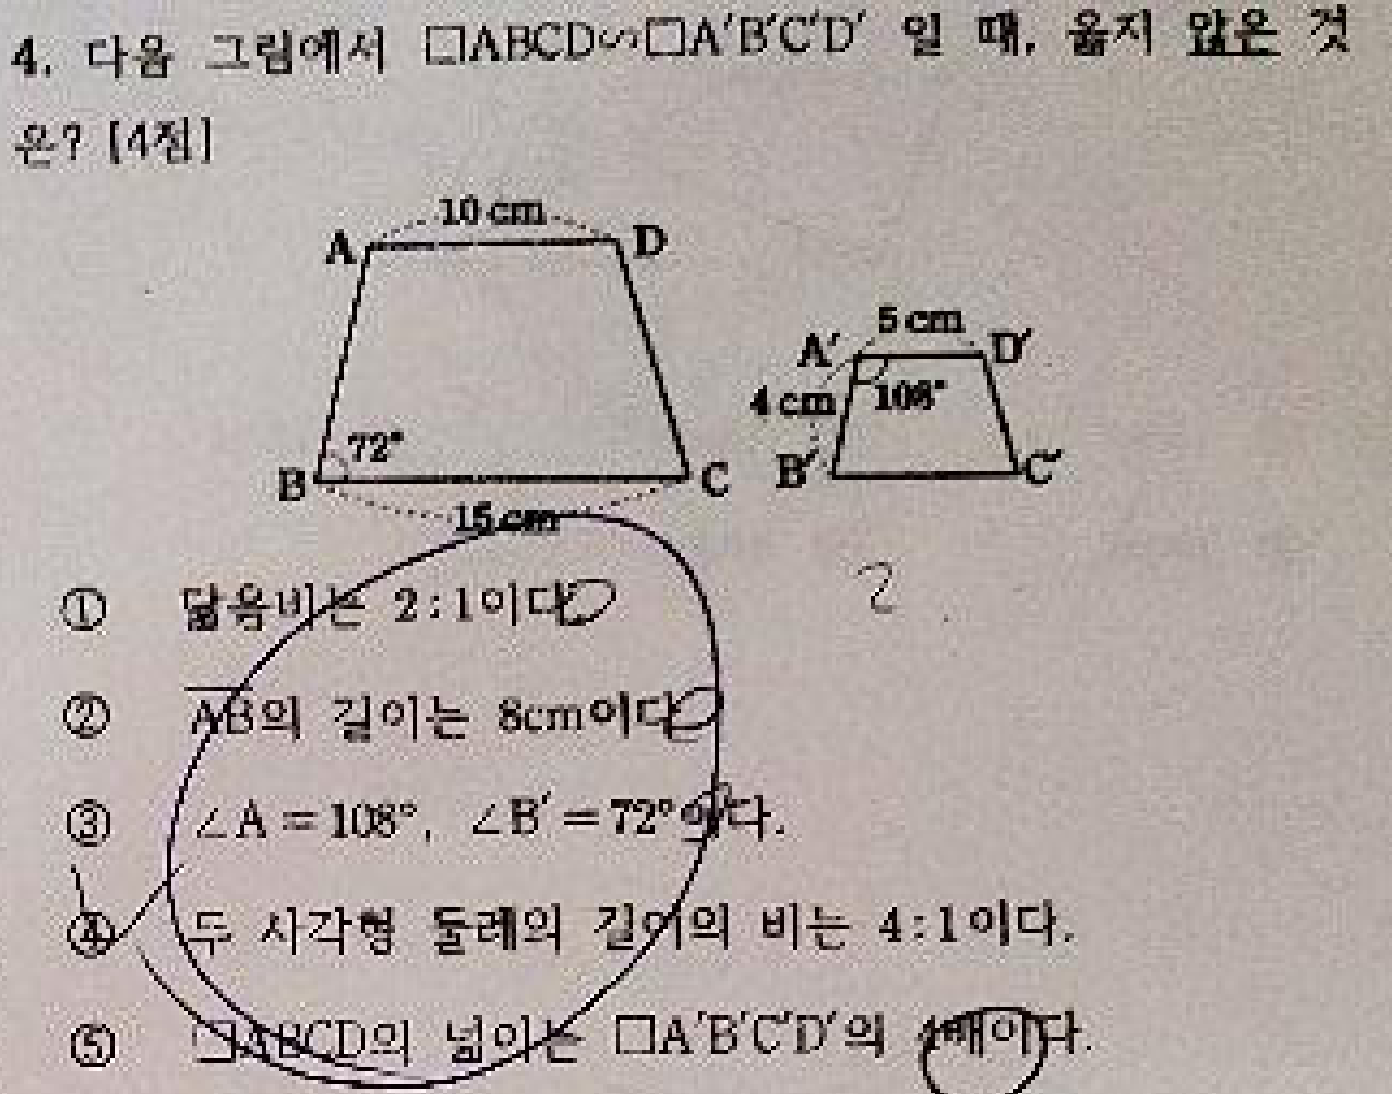 4. 다음 그림에서 □ABCD∽□A′B′C′D′ 일 때, 옳지 않은 것
은? [4점]
10 cm
A D
5 cm
A′ D′
4 cm 108°
72°
B C B′ C′
15 cm
2
① 닮음비는 2:1이다
② AB의 길이는 8cm이다
③ ∠A=108°, ∠B′=72°이다.
④ 두 사각형 둘레의 길이의 비는 4:1이다.
⑤ □ABCD의 넓이는 □A′B′C′D′의 4배이다.